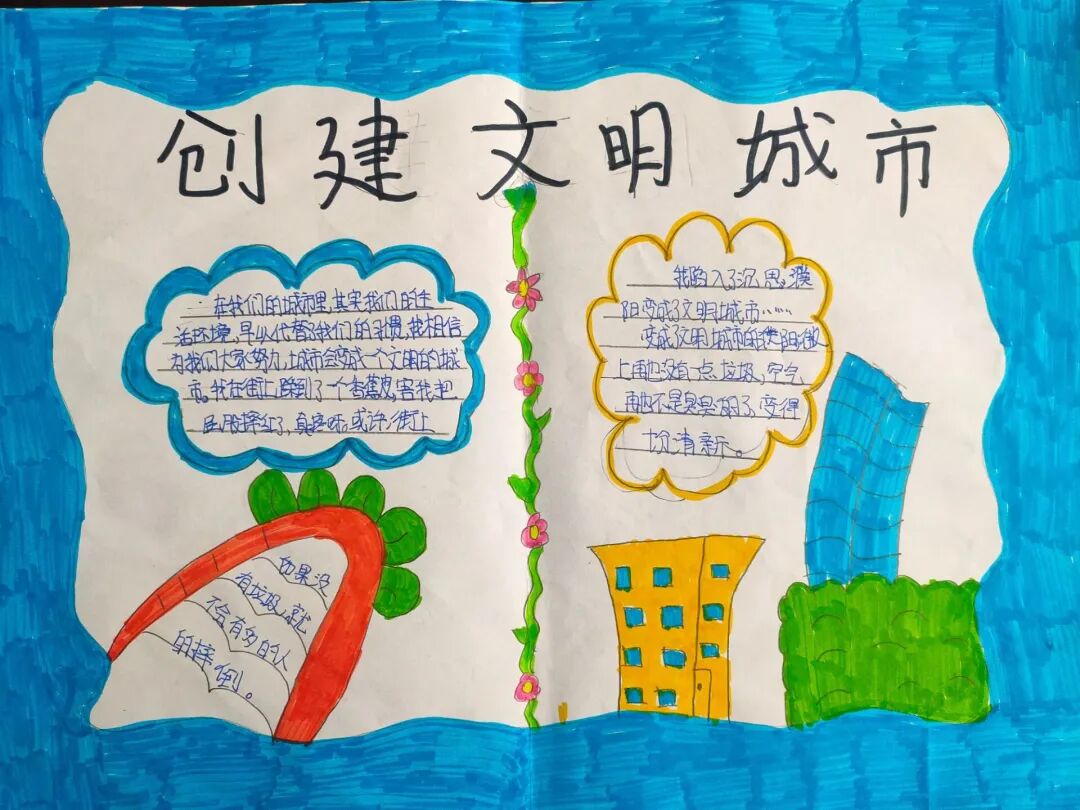 创建文明城市
在我们的城市里,其实我们的生
活环境,早以代替了我们的习惯,我相信
为我们大家努力,城市会变成一个文明的城
市。我在街上踩到了一个香蕉皮,害我把
屁股摔红了,真疼呀,或许,街上
如果没
有垃圾,就
不会有多的人
的摔倒。
我陷入了沉思,濮
阳变成了文明城市……
变成文明城市的濮阳,
上再也没有一点垃圾,空气
再也不是臭臭的了,变得
清新。